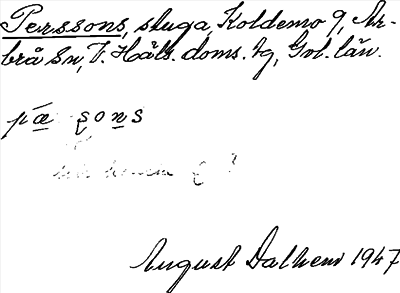 Perssons, stuga, Koldemo 9, Ar-
brå Sn, V. Häls. doms. hg, Gvl. län.
pæ șo n s
August Dalhem 1947